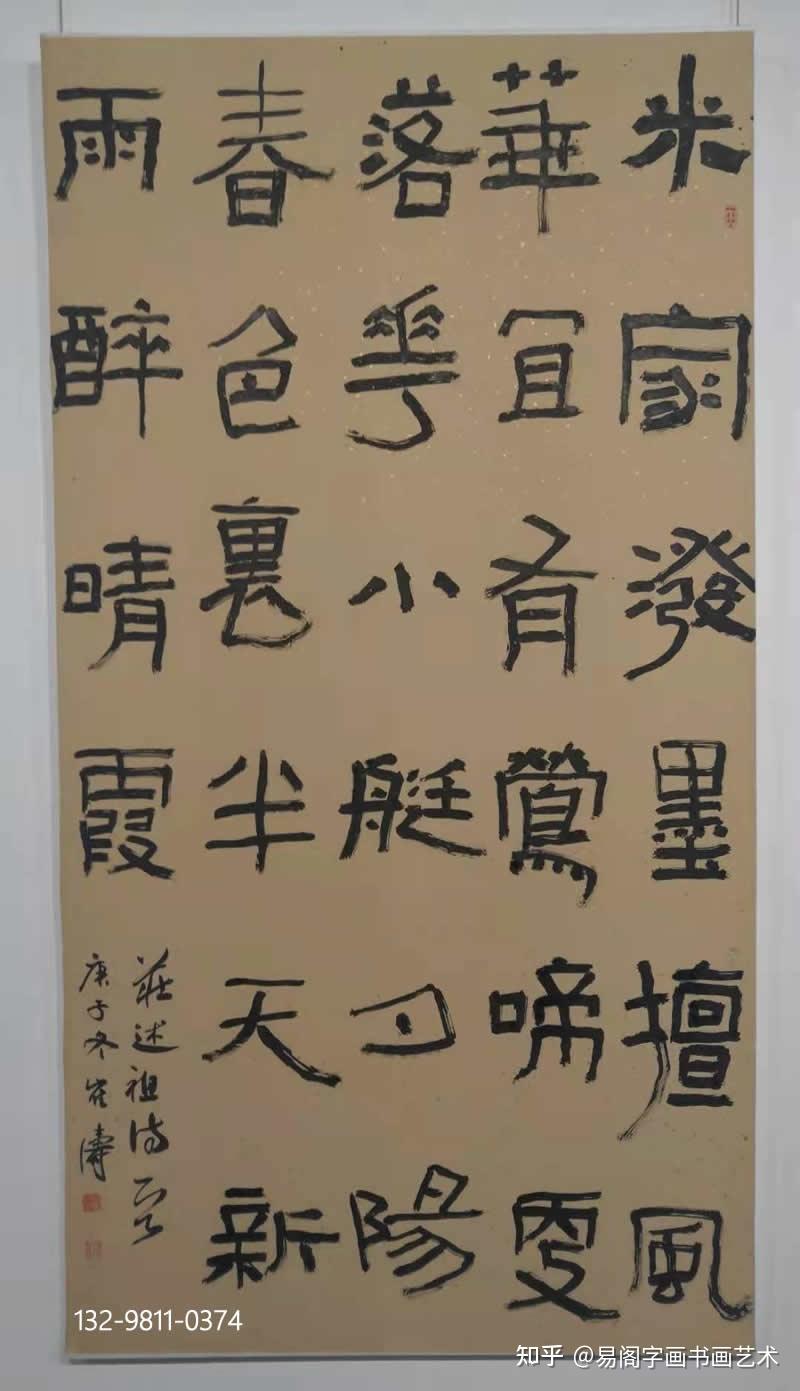 米家潑墨擅風
華宜有鶯啼更
落花小艇夕陽
春色裏半天新
雨醉晴霞
莊述祖詩一首
庚子冬崔濤
132-9811-0374
知乎 @易阁字画书画艺术